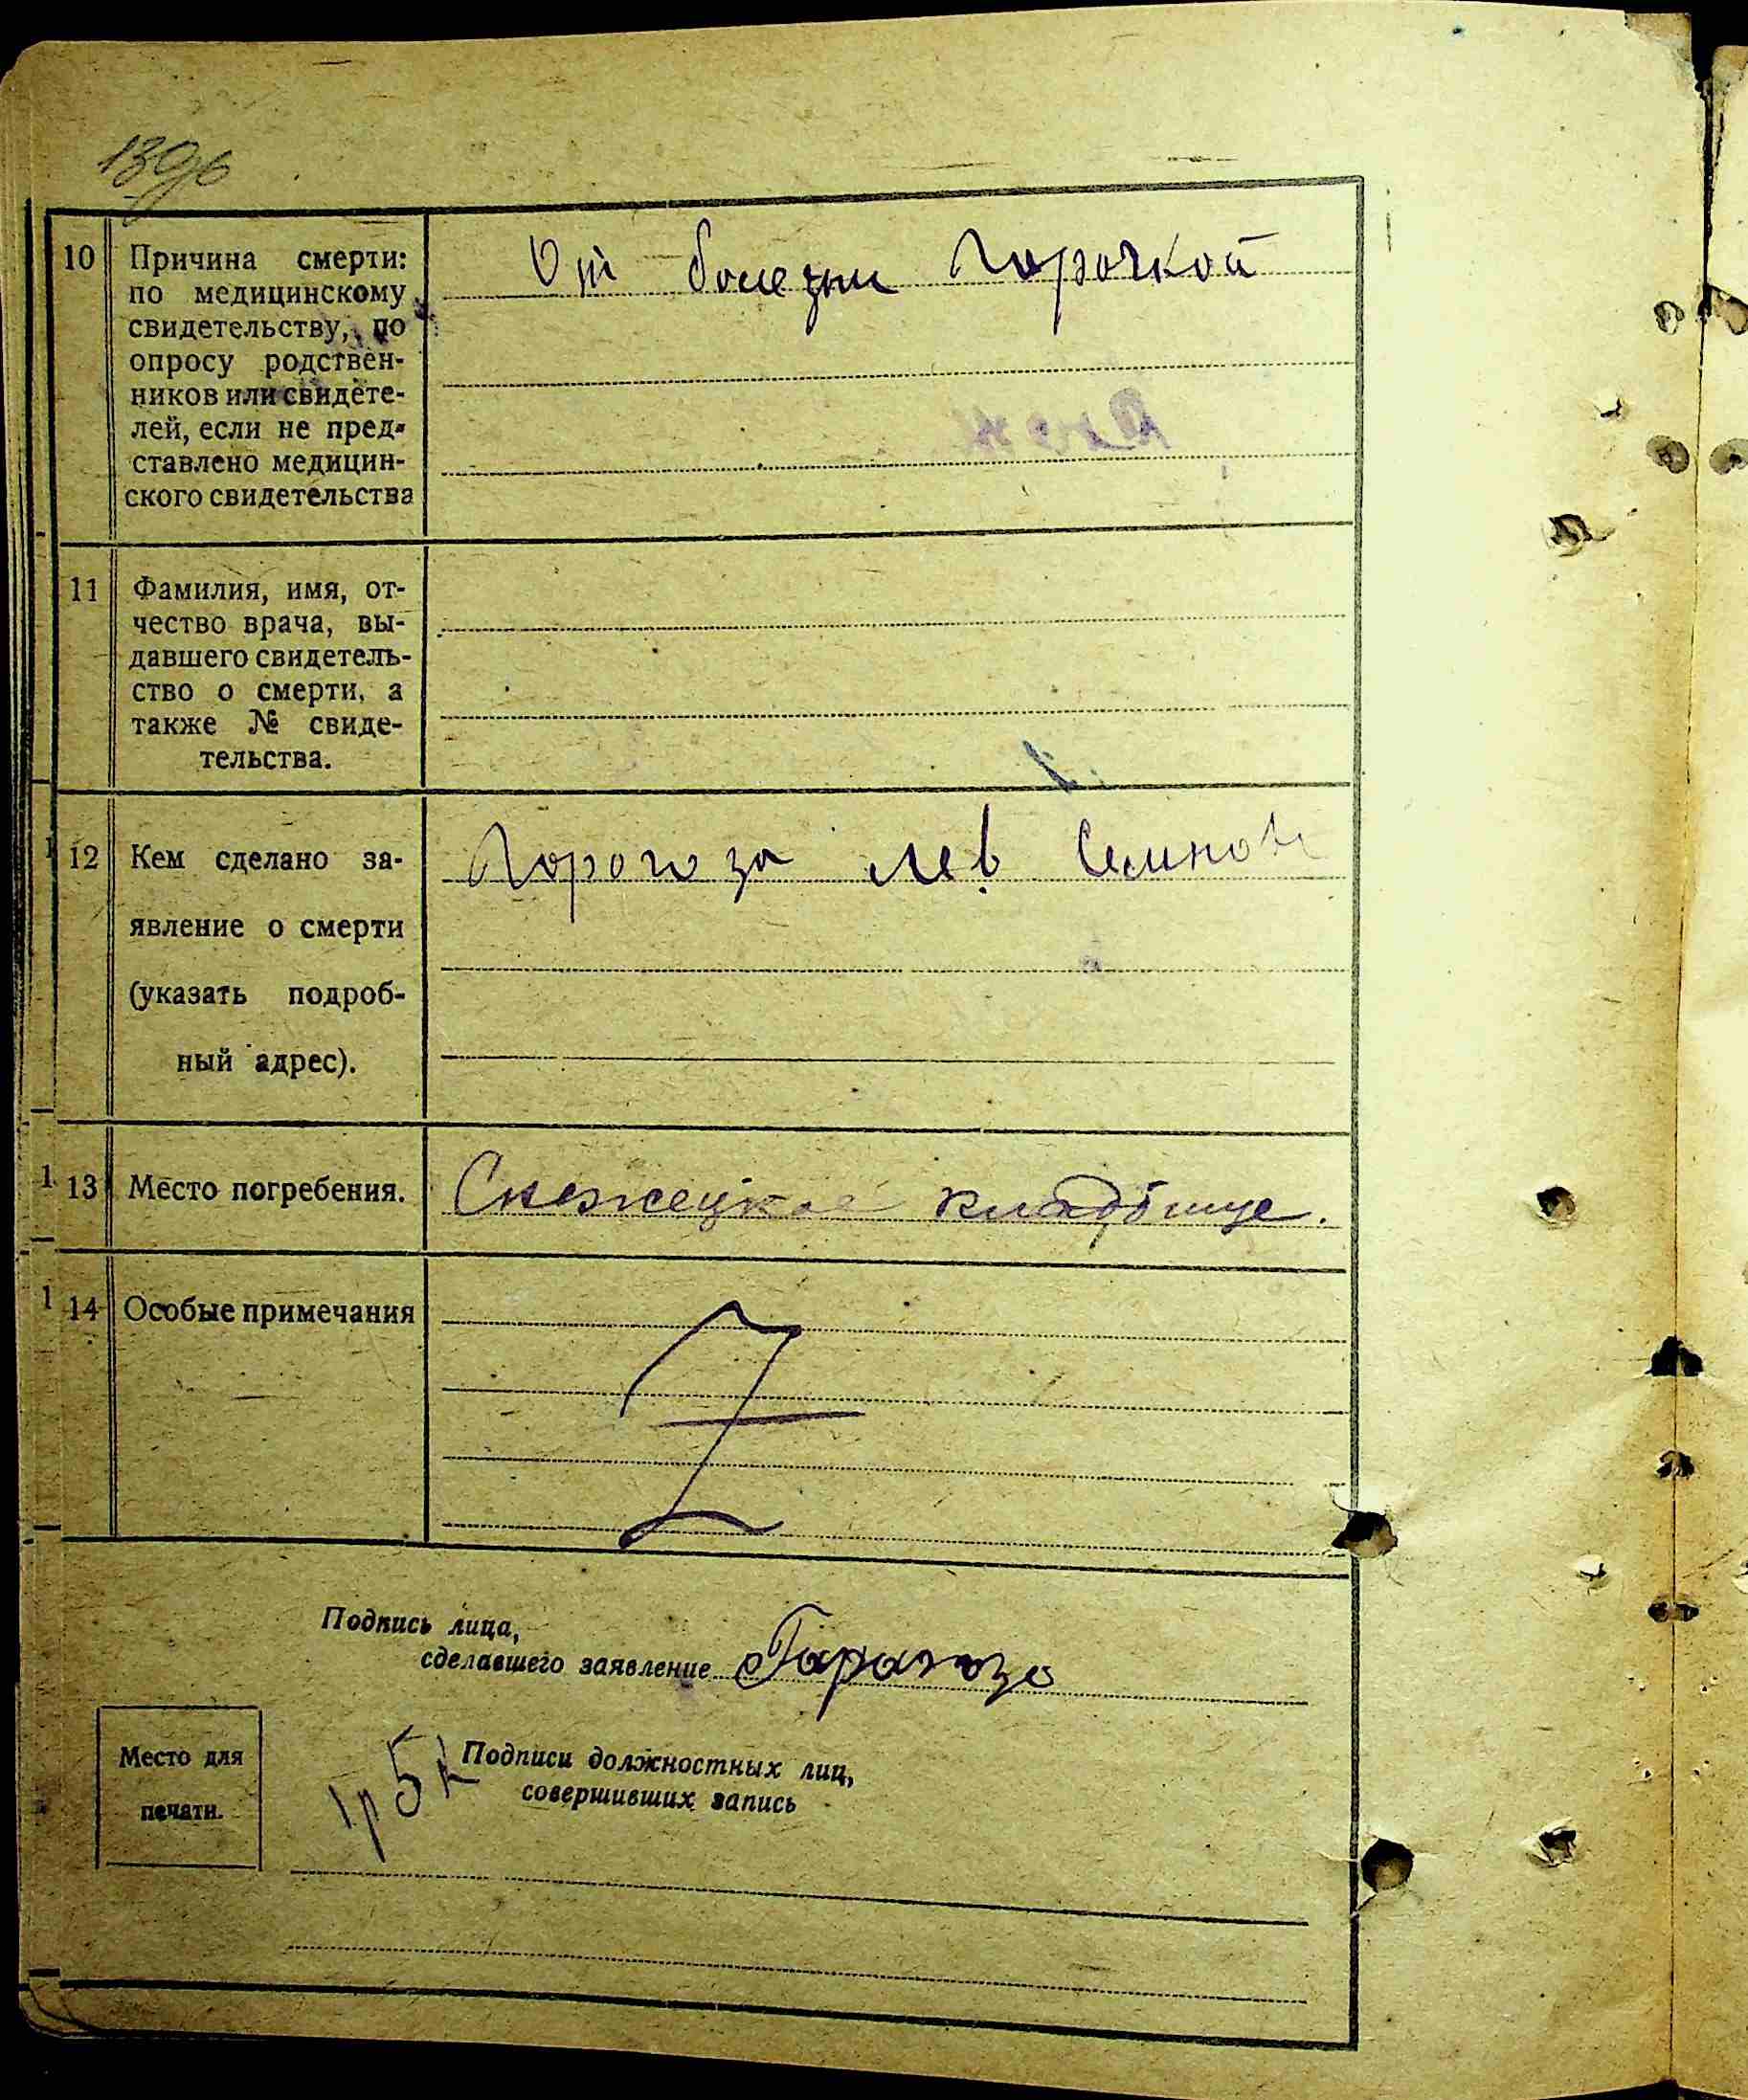 10 Причина смерти: От болезни Горочкой
по медицинскому
свидетельству, по
опросу родствен-
ников или свидете-
лей, если не пред-
ставлено медицин-
ского свидетельства
11 Фамилия, имя, от-
чество врача, вы-
давшего свидетель-
ство о смерти, а
также № свиде-
тельства.
12 Кем сделано за-
явление о смерти
(указать подроб-
ный адрес).
13 Место погребения. кладбище.
14 Особые примечания
Z
Подпись лица,
сделавшего заявление
Место для
печати.
Подписи должностных лиц,
совершивших запись